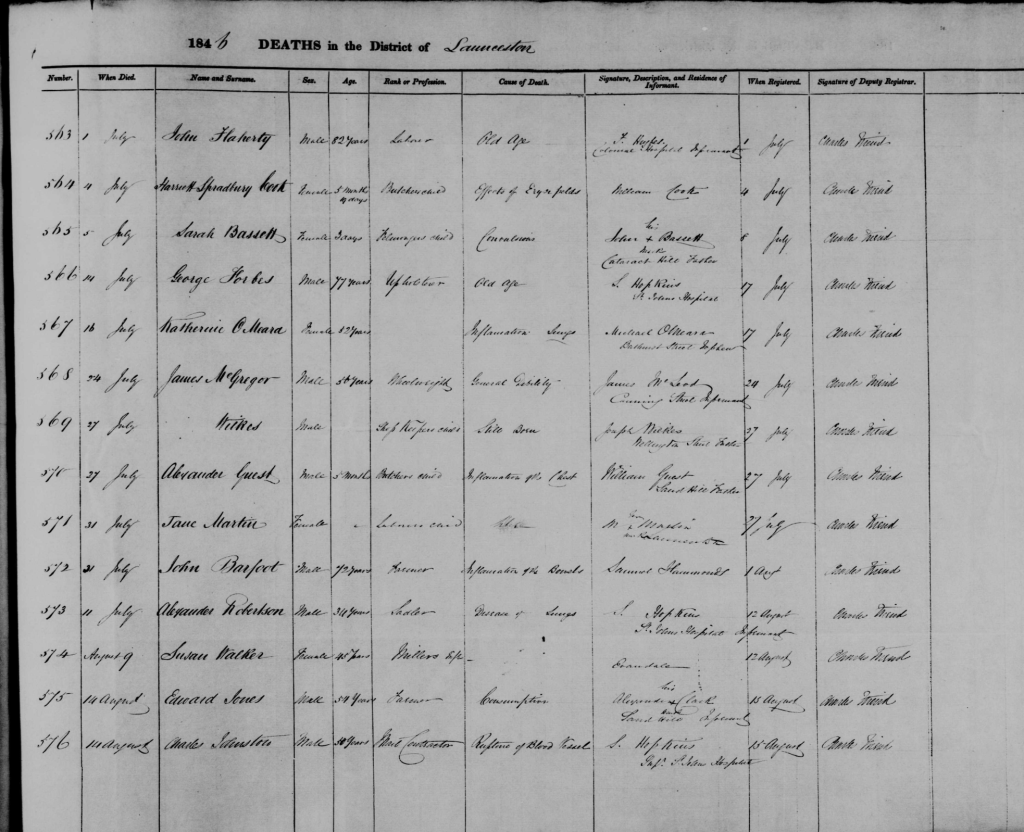 1846 DEATHS in the District of Launceston
Number. When Died. Name and Surname. Sex. Age. Rank or Profession. Cause of Death. Signature, Description, and Residence of Informant. When Registered. Signature of Deputy Registrar.
563 1 July John Flaherty Male 82 years Old Age 1 July Charles Friend
Colonial Hospital Informant
564 4 July Harriett Spradbury Cook Female 5 months Butchers child Effects of William Cook 4 July Charles Friend
days
565 5 July Sarah Bassett Female 3 days child Convulsions John + Bassett July Charles Friend
his
mark
Cataract Hill Father
566 14 July George Forbes Male 77 years Upholsterer Old Age S. Hopkins 17 July Charles Friend
St Johns Hospital
567 16 July Katherine O'Meara Female years Inflamation Lungs Michael O'Meara 17 July Charles Friend
Bathurst Street
568 24 July James McGregor Male years Wheelwright General Debility James McLeod 24 July Charles Friend
Canning Street Informant
569 27 July Wilkes Male Shop Keepers child Still Born Joseph Wilkes 27 July Charles Friend
Wellington Street Father
570 27 July Alexander Guest Male 5 months Butchers child Inflamation of the Chest William Guest 27 July Charles Friend
Sand Hill Father
571 31 July Jane Martin Female - child Martin July Charles Friend
572 31 July John Barfoot Male 72 years Inflamation of the Bowels Samuel Hammonds 1 Augt Charles Friend
573 11 July Alexander Robertson Male 34 years Sadler Disease of Lungs S. Hopkins 12 August Charles Friend
St Johns Hospital Informant
574 August 9 Susan Walker Female 45 Years Millers 12 August Charles Friend
Evandale
575 14 August Edward Jones Male 54 Years Farmer Consumption Alexander + Clark 15 August Charles Friend
his
mark
Sand Hill Informant
576 14 August Charles Johnston Male 50 Years Meat Contractor Rupture of Blood Vessel S. Hopkins 15 August Charles Friend
Inft St Johns Hospital